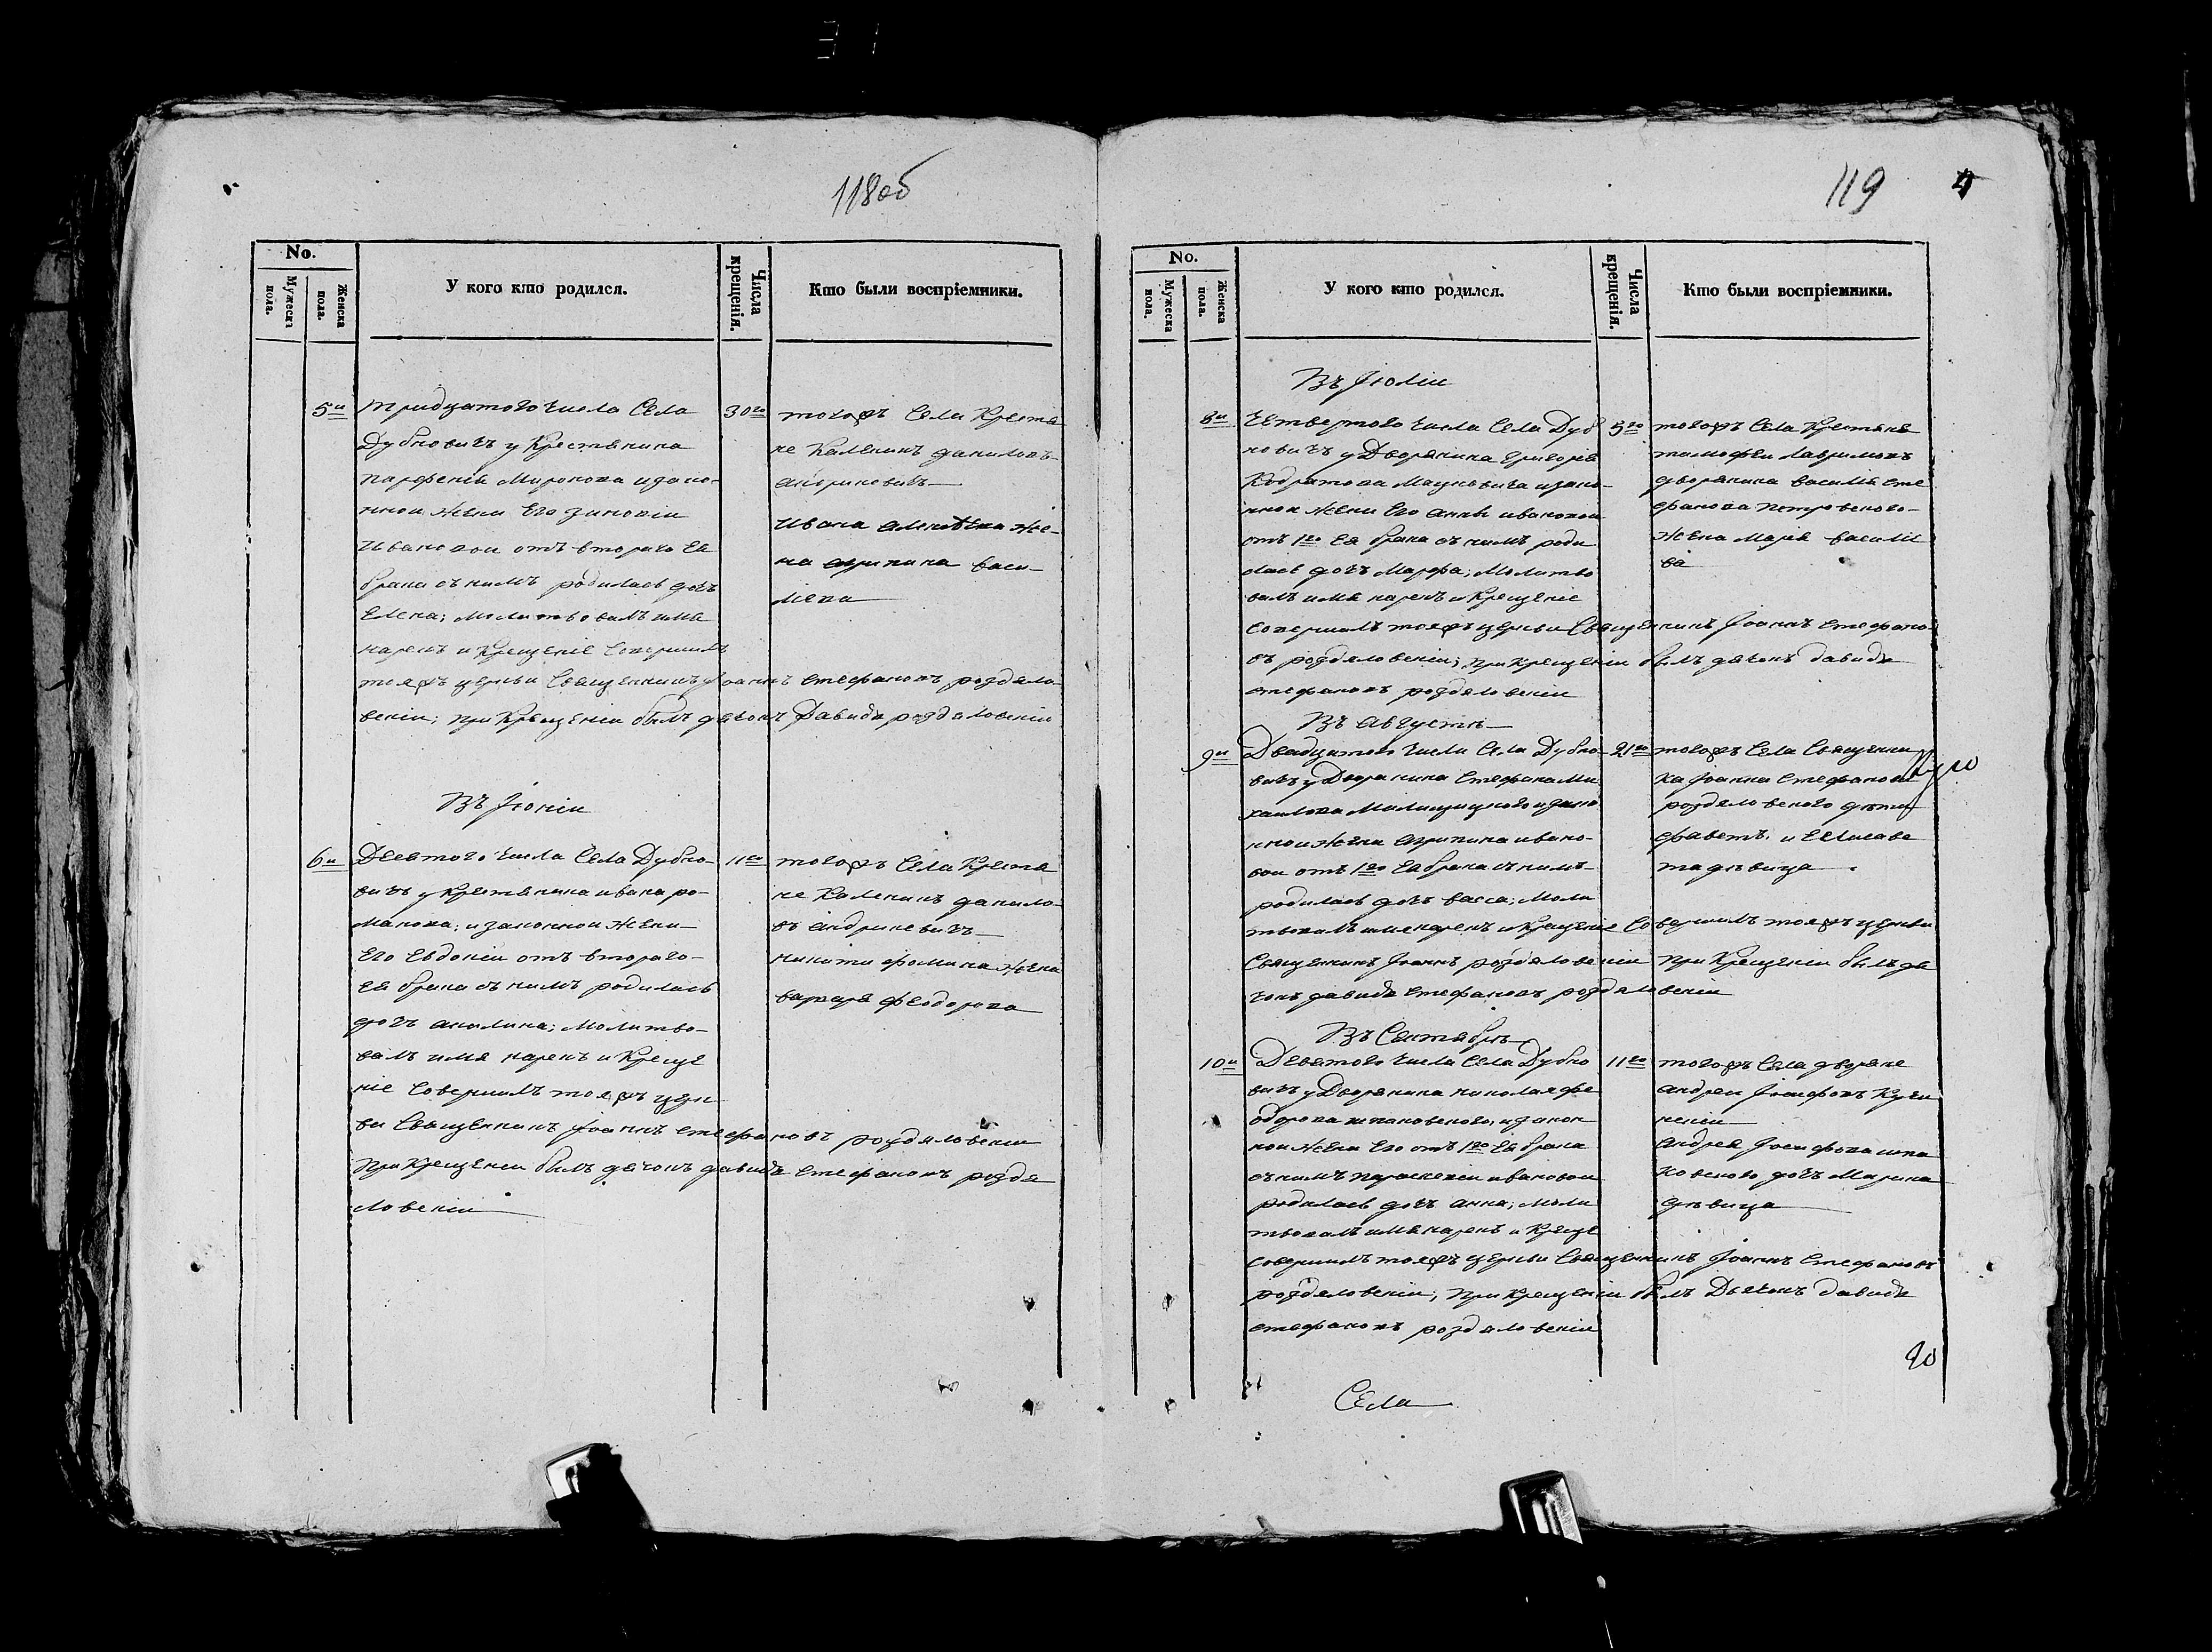 118об
No.
Мужеска пола.
Женска пола.
У кого кто родился.
Числа крещенія.
Кто были воспріемники.
5и
тридцатого числа Села
Дубновичъ у Крестянина
парфенія Миронова изако-
нной жены Его зиновіи
Ивановои отъ второго Ея
брака снимъ родилась дочъ
Елена; молитвовалъ имя
нарекъ и Крещеніе Совершилъ
тояжъ церкви Священникъ Іоаннъ Стефановъ роздяло-
вскіи; при Крещеніи былъ дячокъ Давидъ роздяловскіи
30го
тогожъ Села Крестя
не Каленикъ даниловъ
андриевичъ
Ивана алексѣева же-
на агрипина васи-
лієва
Въ Іюніи
6и
Девятого числа Села Дубно-
вичъ у Крестянина ивана ро-
манова; изаконнои жены
Его Евдокіи отъ второго
Ея брака съ нимъ родилась
дочъ акилина; молитво-
валъ имя нарекъ и Креще
ніе Совершилъ тояжъ церк
ви Священникъ Іоаннъ стефановъ роздяловскіи
При Крещеніи былъ дячокъ давидъ стефановъ роздя
ловскіи
11го
тогожъ Села Крестя
не Каленикъ данило-
въ андриевичъ
никити фомина жена
варвара феодорова
119
No.
Мужеска пола.
Женска пола.
У кого кто родился.
Числа крещенія.
Кто были воспріемники.
Въ Іюліи
8и
Четвертого числа Села Дуб
новичъ у Дворянина григорія
Кодратова Мацкевича изако-
нной жены Его анны ивановои
отъ 1го Ея брака съ нимъ роди
лась дочъ Марфа; Молитво
валъ имя нарекъ и Крещеніе
Совершилъ тояжъ церкви Священникъ Іоаннъ Стефано-
въ роздяловскіи; при Крещеніи былъ дячокъ давидъ
стефановъ роздяловскіи
5го
тогожъ Села Крестяне
тимофеи лавриновъ
дворянина василія сте
фанова петровского
жена марія василіе
ва
Въ Августѣ
9и
Двадцатого числа Села Дубно-
вичъ у Дворянина Стефана Ми
хаилова изако
нной жены агрипина ивано-
вои отъ 1го Ея брака съ нимъ
родилась дочъ васса; Моли
твовалъ имя нарекъ и Крещеніе Совершилъ тояжъ церкви
Священникъ Іоаннъ роздяловскіи при Крещеніи былъ дя
чокъ давидъ Стефановъ роздяловскіи
21го
тогожъ Села Священни
ка Іоанна Стефанова
роздяловского дѣти
и Елисаве
та дѣвица
Въ Сентябрѣ
10и
Девятого числа Села Дубно
вичъ у Дворянина николая фе
одорова шпаковского, изакон
ной жены Его отъ 1го Ея брака
снимъ параскевіи ивановои
родилась дочъ анна; моли
твовалъ имя нарекъ и Креще
совершилъ тояжъ церкви Священникъ Іоаннъ Стефановъ
роздяловскіи; при Крещеніи былъ Дьячокъ давидъ
стефановъ роздяловскіи
11го
тогожъ Села дворяне
андреи Іосифовъ
андрея Іосифова шпа
ковского дочъ Марина
дѣвица
Села